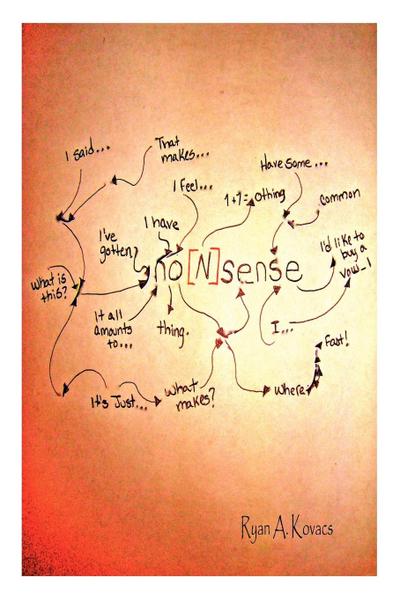 I said...
That
makes...
Have some...
I feel...
1+1=
othing
common
I have
I've
gotten
I'd like to
buy a
vow_l
no[N]sense
What is
this?
It all
amounts
to...
thing.
I...
Fast!
It's Just...
What
makes?
Where
Ryan A. Kovacs